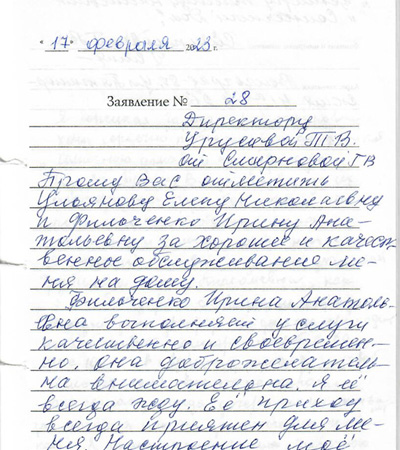 "17" февраля 2023 г.
Заявление № 28
Директору
Урусовой Т.В.
от Смирновой Г В
Прошу Вас отметить
Ульянову Елену Николаевну
и Фильченко Ирину Ана-
тольевну за хорошее и качест
венное обслуживание ме-
ня на дому.
Фильченко Ирина Анатоль-
евна выполняет услуги
качественно и своевремен-
но, она доброжелатель-
на внимательна. Я её
всегда жду. Её приход
всегда приятен для ме-
ня. Настроение моё